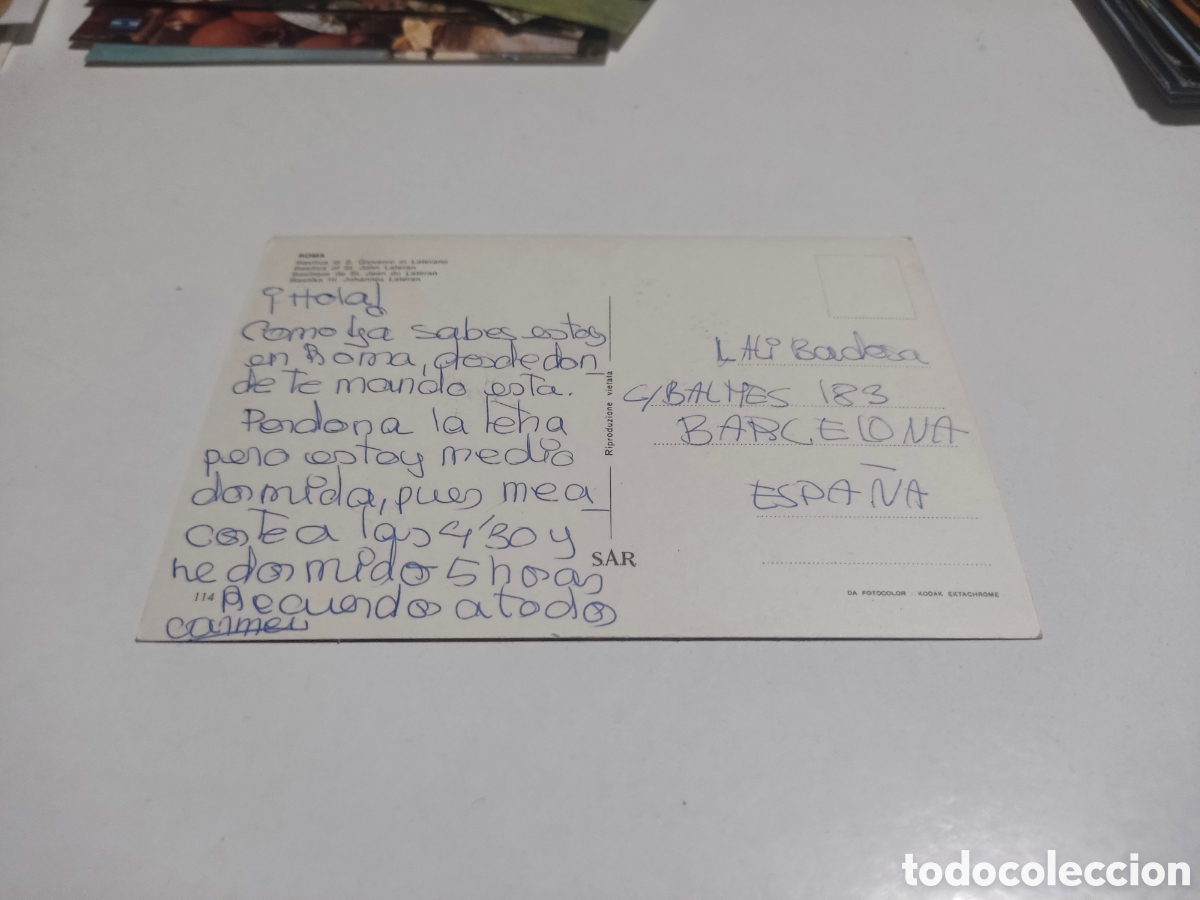 ROMA
Basilica di S. Giovanni in Laterano
Basilica of St. John Lateran
Basilique de St. Jean du Latéran
Basilika St. Johannes Lateran
¡Hola!
Como ya sabes estoy
en Roma, desde don_
de te mando esta.
Perdona la letra
pero estoy medio
dormida, pues me a_
costé a las 4'30 y
he dormido 5 horas
114 Recuerdos a todos
Carmen
Riproduzione vietata
SAR
Lali Badosa
C/BALMES 183
BARCELONA
ESPAÑA
DA FOTOCOLOR - KODAK EXTACHROME
todocoleccion